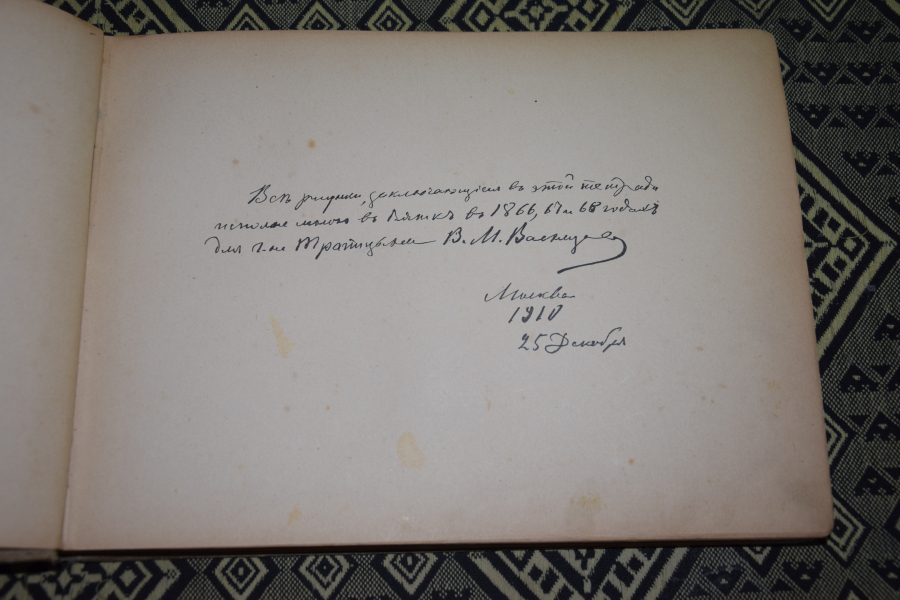 Всѣ рисунки, заключающіеся въ этой тетради
исполне мною въ Вяткѣ въ 1866, 67 и 68 годахъ
для г-на Трапицына В. М. Васнецовъ
Москва
1910
25 Декабря